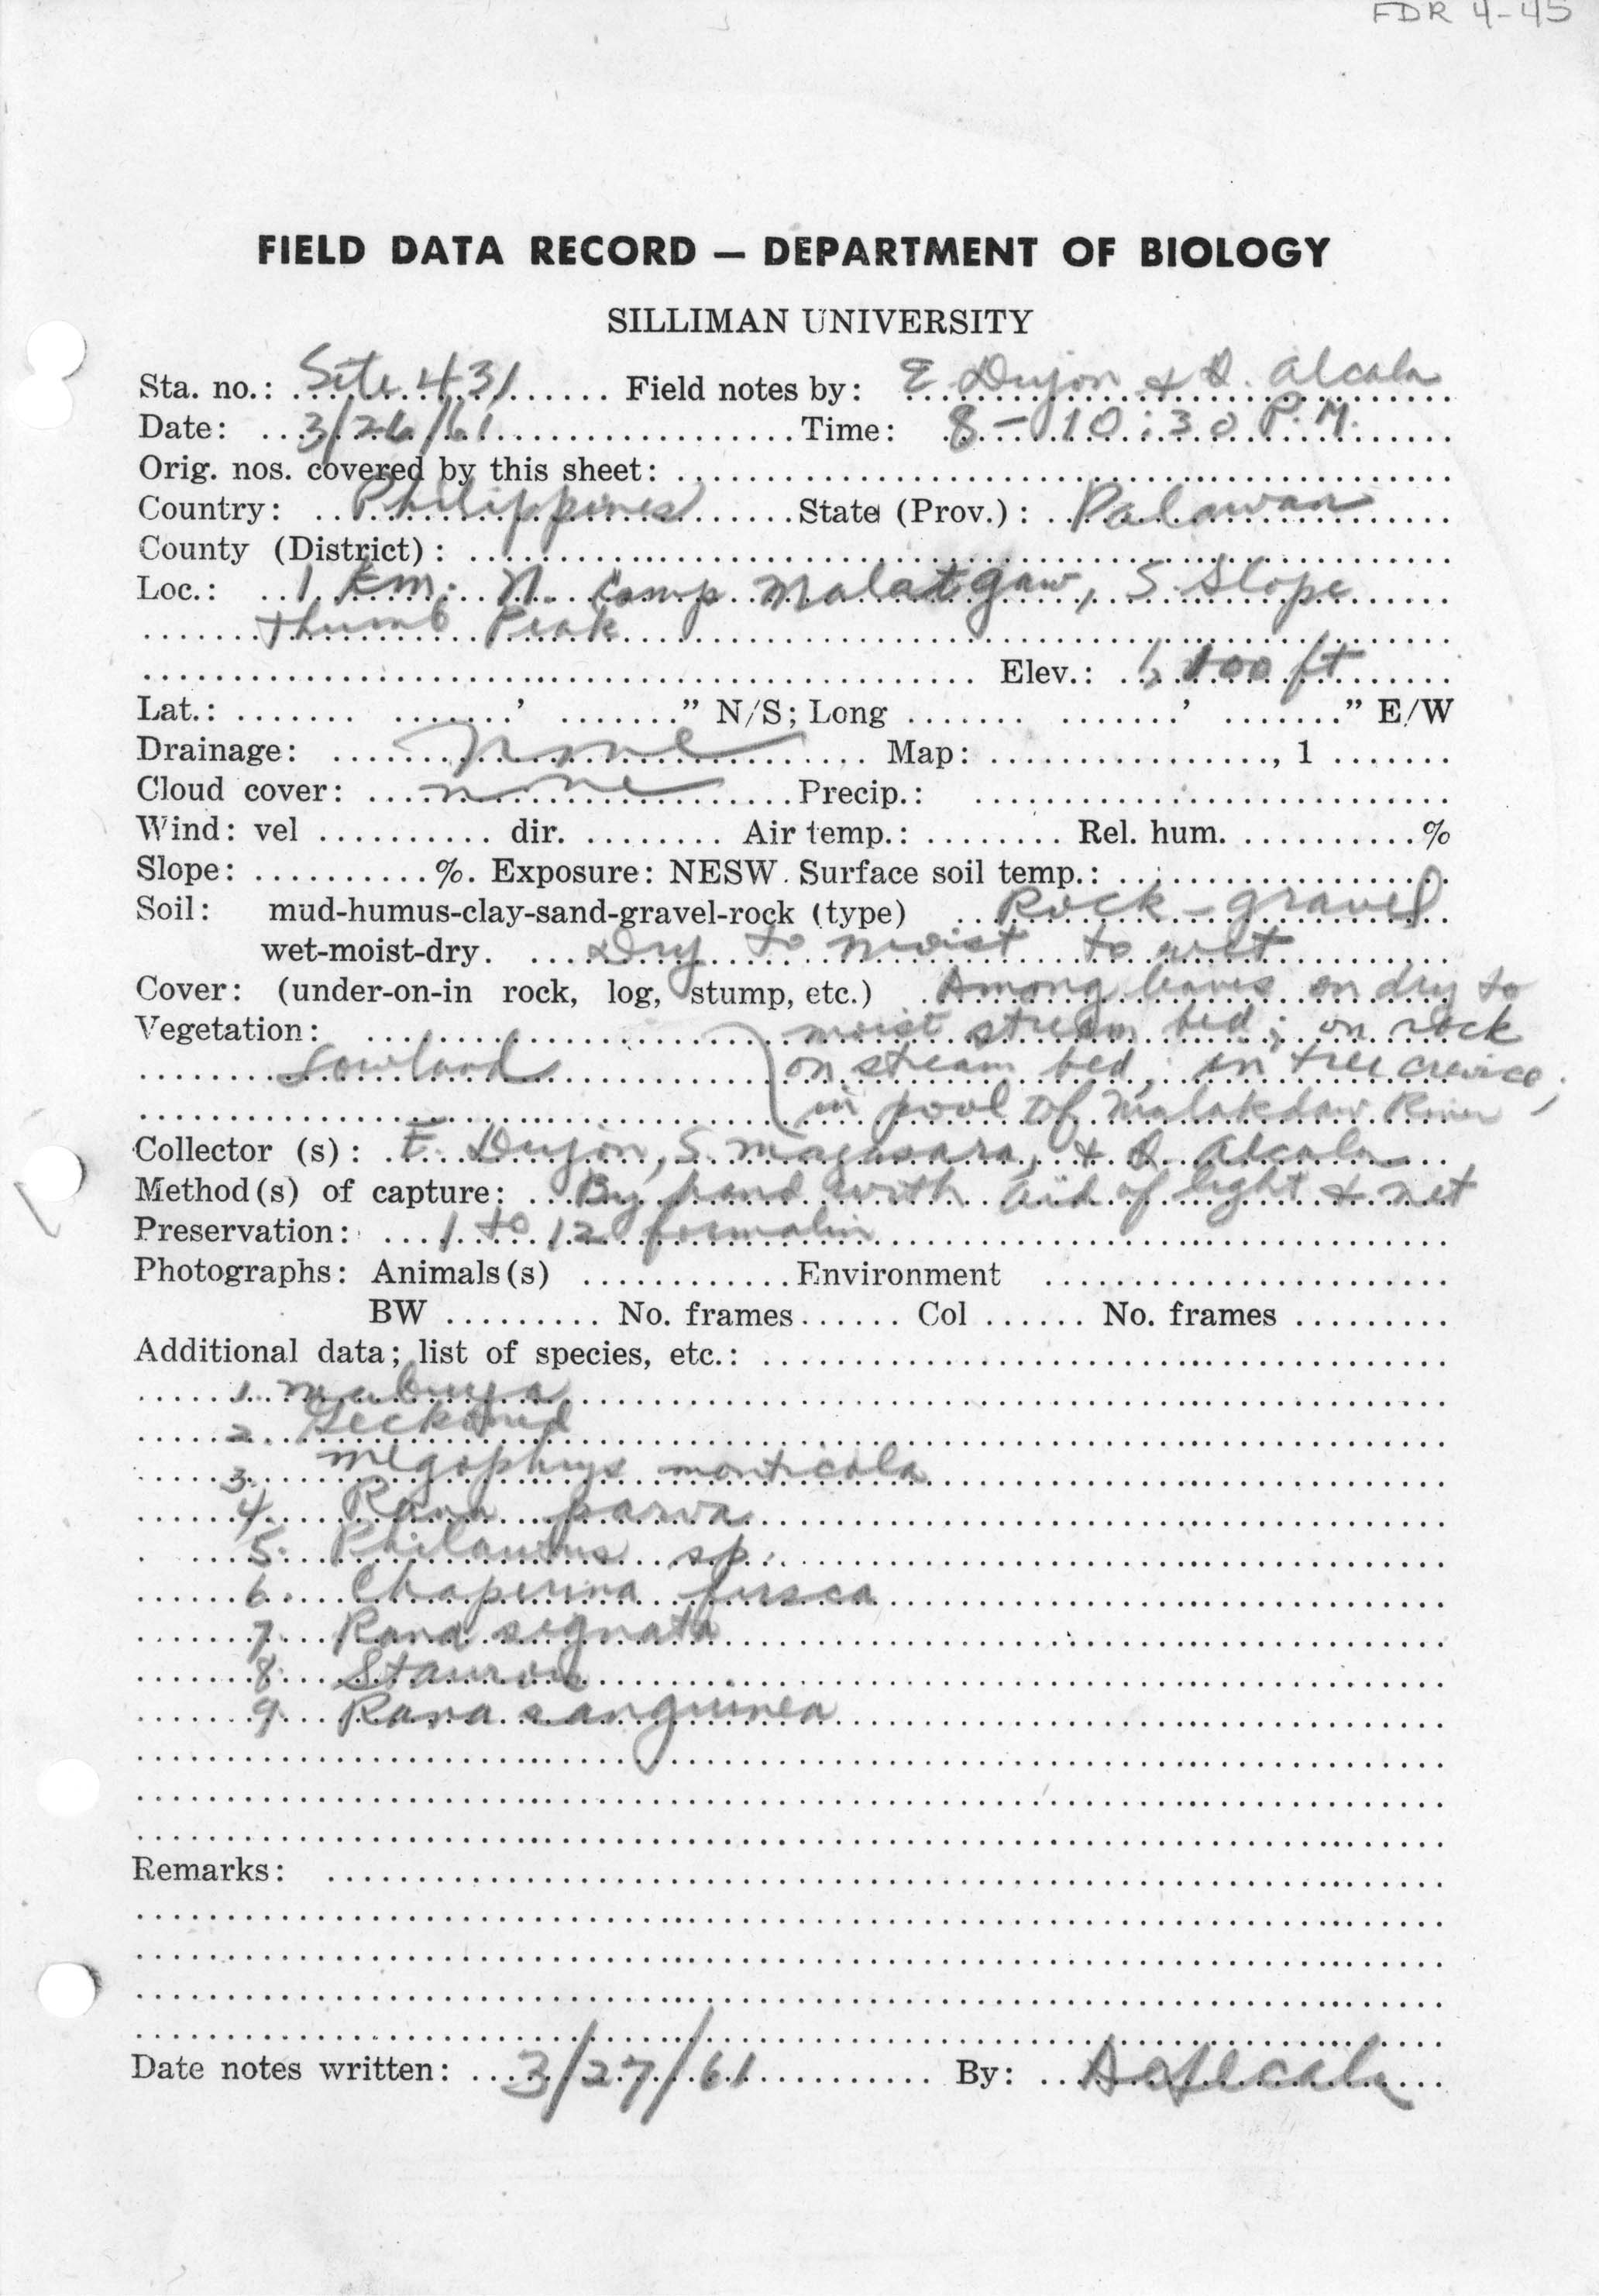 FDR 4-45
FIELD DATA RECORD — DEPARTMENT OF BIOLOGY
SILLIMAN UNIVERSITY
Sta. no.: Site 431 Field notes by: E. Dujon & A. Alcala
Date: 3/26/61 Time: 8-10:30 P.M.
Orig. nos. covered by this sheet:
Country: Philippines State (Prov.): Palawan
County (District):
Loc.: 1 Km. N. Camp Malatgaw, S. Slope
Thumb Peak
Elev.: ft
Lat.: ' " N/S; Long ' " E/W
Drainage: none Map: , 1
Cloud cover: none Precip.:
Wind: vel dir. Air temp.: Rel. hum. %
Slope: %. Exposure: NESW. Surface soil temp.:
Soil: mud-humus-clay-sand-gravel-rock (type) Rock-gravel
wet-moist-dry. Dry to moist to wet
Cover: (under-on-in rock, log, stump, etc.) Among leaves on dry to
Vegetation: moist stream bed; on rock
Lowland on stream bed; in tree crevice;
in pool of Malakdaw River
Collector (s): E. Dujon, S. Magusara, & A. Alcala
Method(s) of capture: By hand with aid of light & net
Preservation: 1 to 12 formalin
Photographs: Animals(s) Environment
BW No. frames Col No. frames
Additional data; list of species, etc.:
1. Mabuya
2. Geckonid
3. Megophrys monticola
4. Rana parva
5. Philautus sp.
6. Chaperina fusca
7. Rana signata
8. Staurois
9. Rana sanguinea
Remarks:
Date notes written: 3/27/61 By: A Alcala